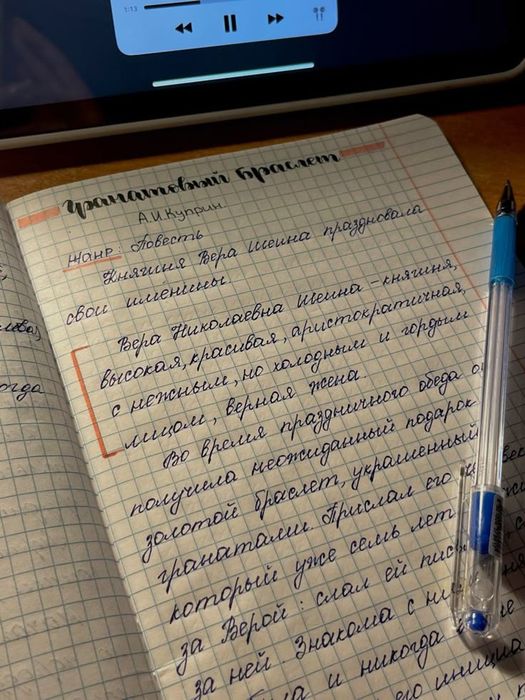 1:13
Гранатовый браслет
А.И.Куприн.
Жанр: Повесть
Княгиня Вера Шеина праздновала
свои именины.
Вера Николаевна Шеина – княгиня,
высокая, красивая, аристократичная,
с нежным, но холодным и гордым
лицом, верная жена.
Во время праздничного обеда о
получила неожиданный подарок
золотой браслет, украшенный
гранатами. Прислал его
который уже семь лет
за Верой: слал ей пис
за ней. Знакома с ни
и никогда не
его инициа
огда